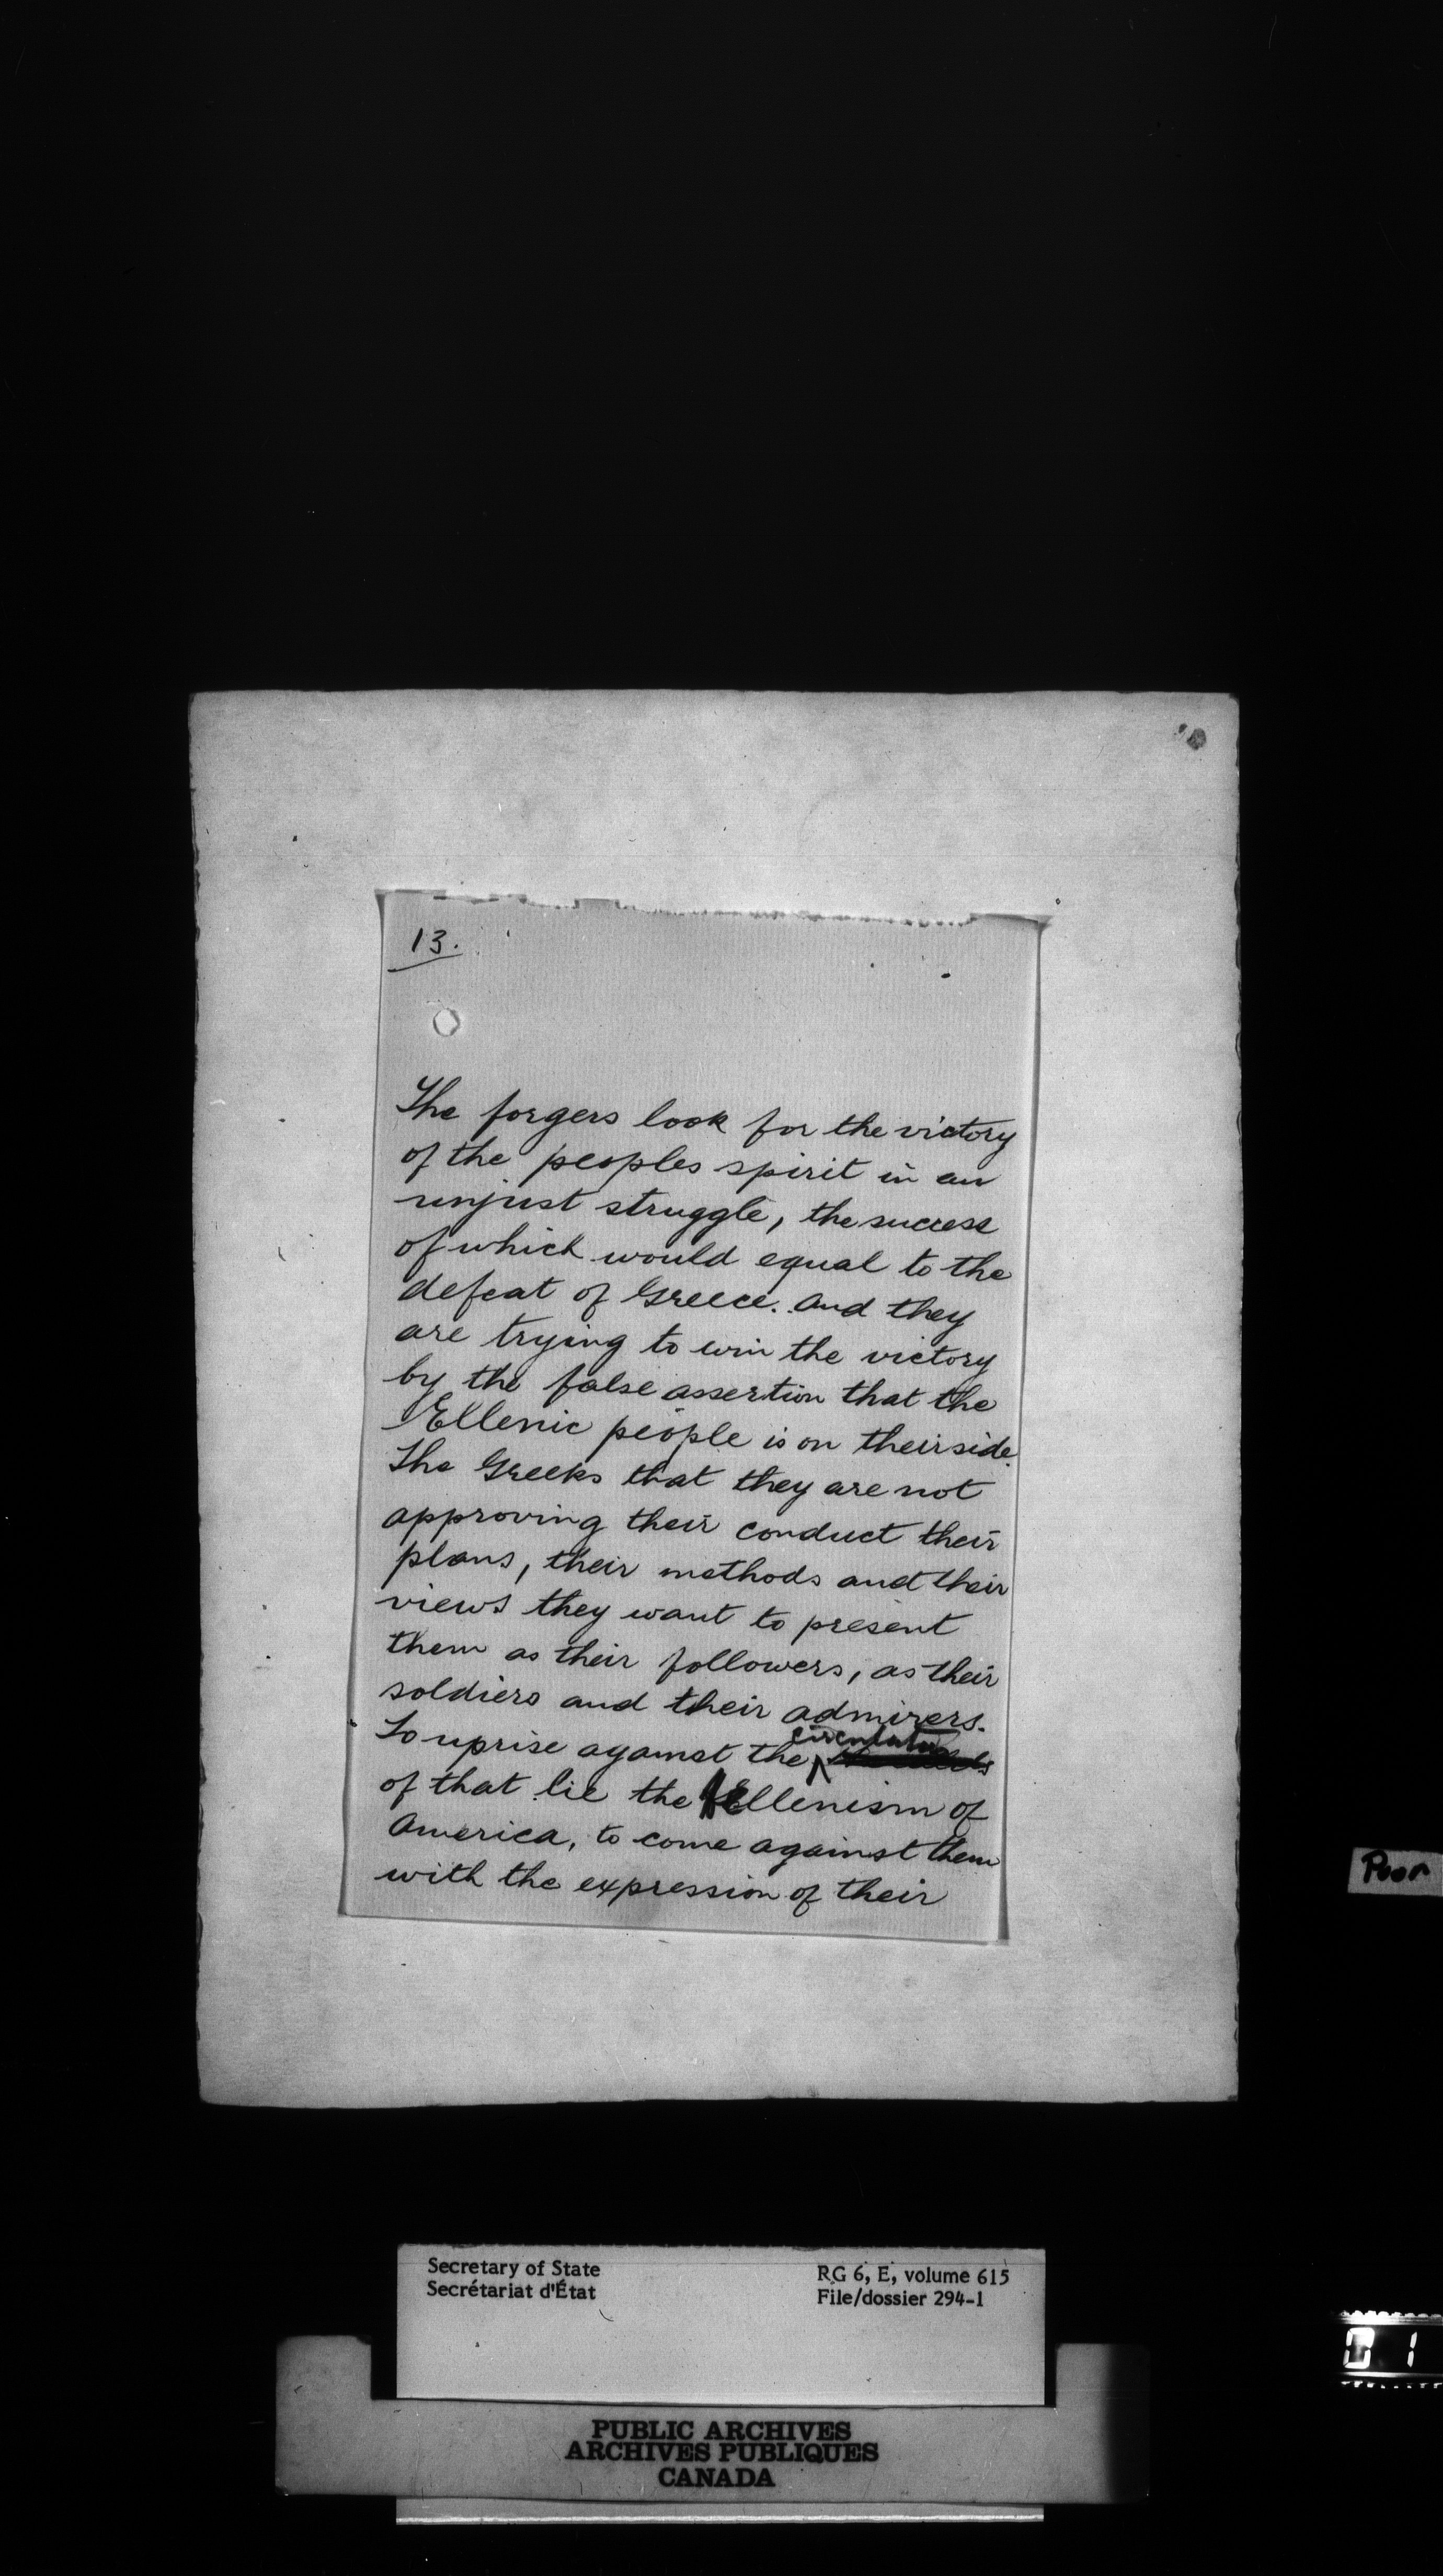 13.
The forgers look for the victory
of the peoples spirit in an
unjust struggle, the success
of which would equal to the
defeat of Greece. And they
are trying to win the victory
by the false assertion that the
Ellenic people is on their side.
The Greeks that they are not
approving their conduct their
plans, their methods and their
views they want to present
them as their followers, as their
soldiers and their admirers.
To uprise against the
of that lie the Ellenism of
America, to come against them
with the expression of their
Poor
Secretary of State
Secrétariat d'État
RG 6, E, volume 615
File/dossier 294-1
PUBLIC ARCHIVES
ARCHIVES PUBLIQUES
CANADA